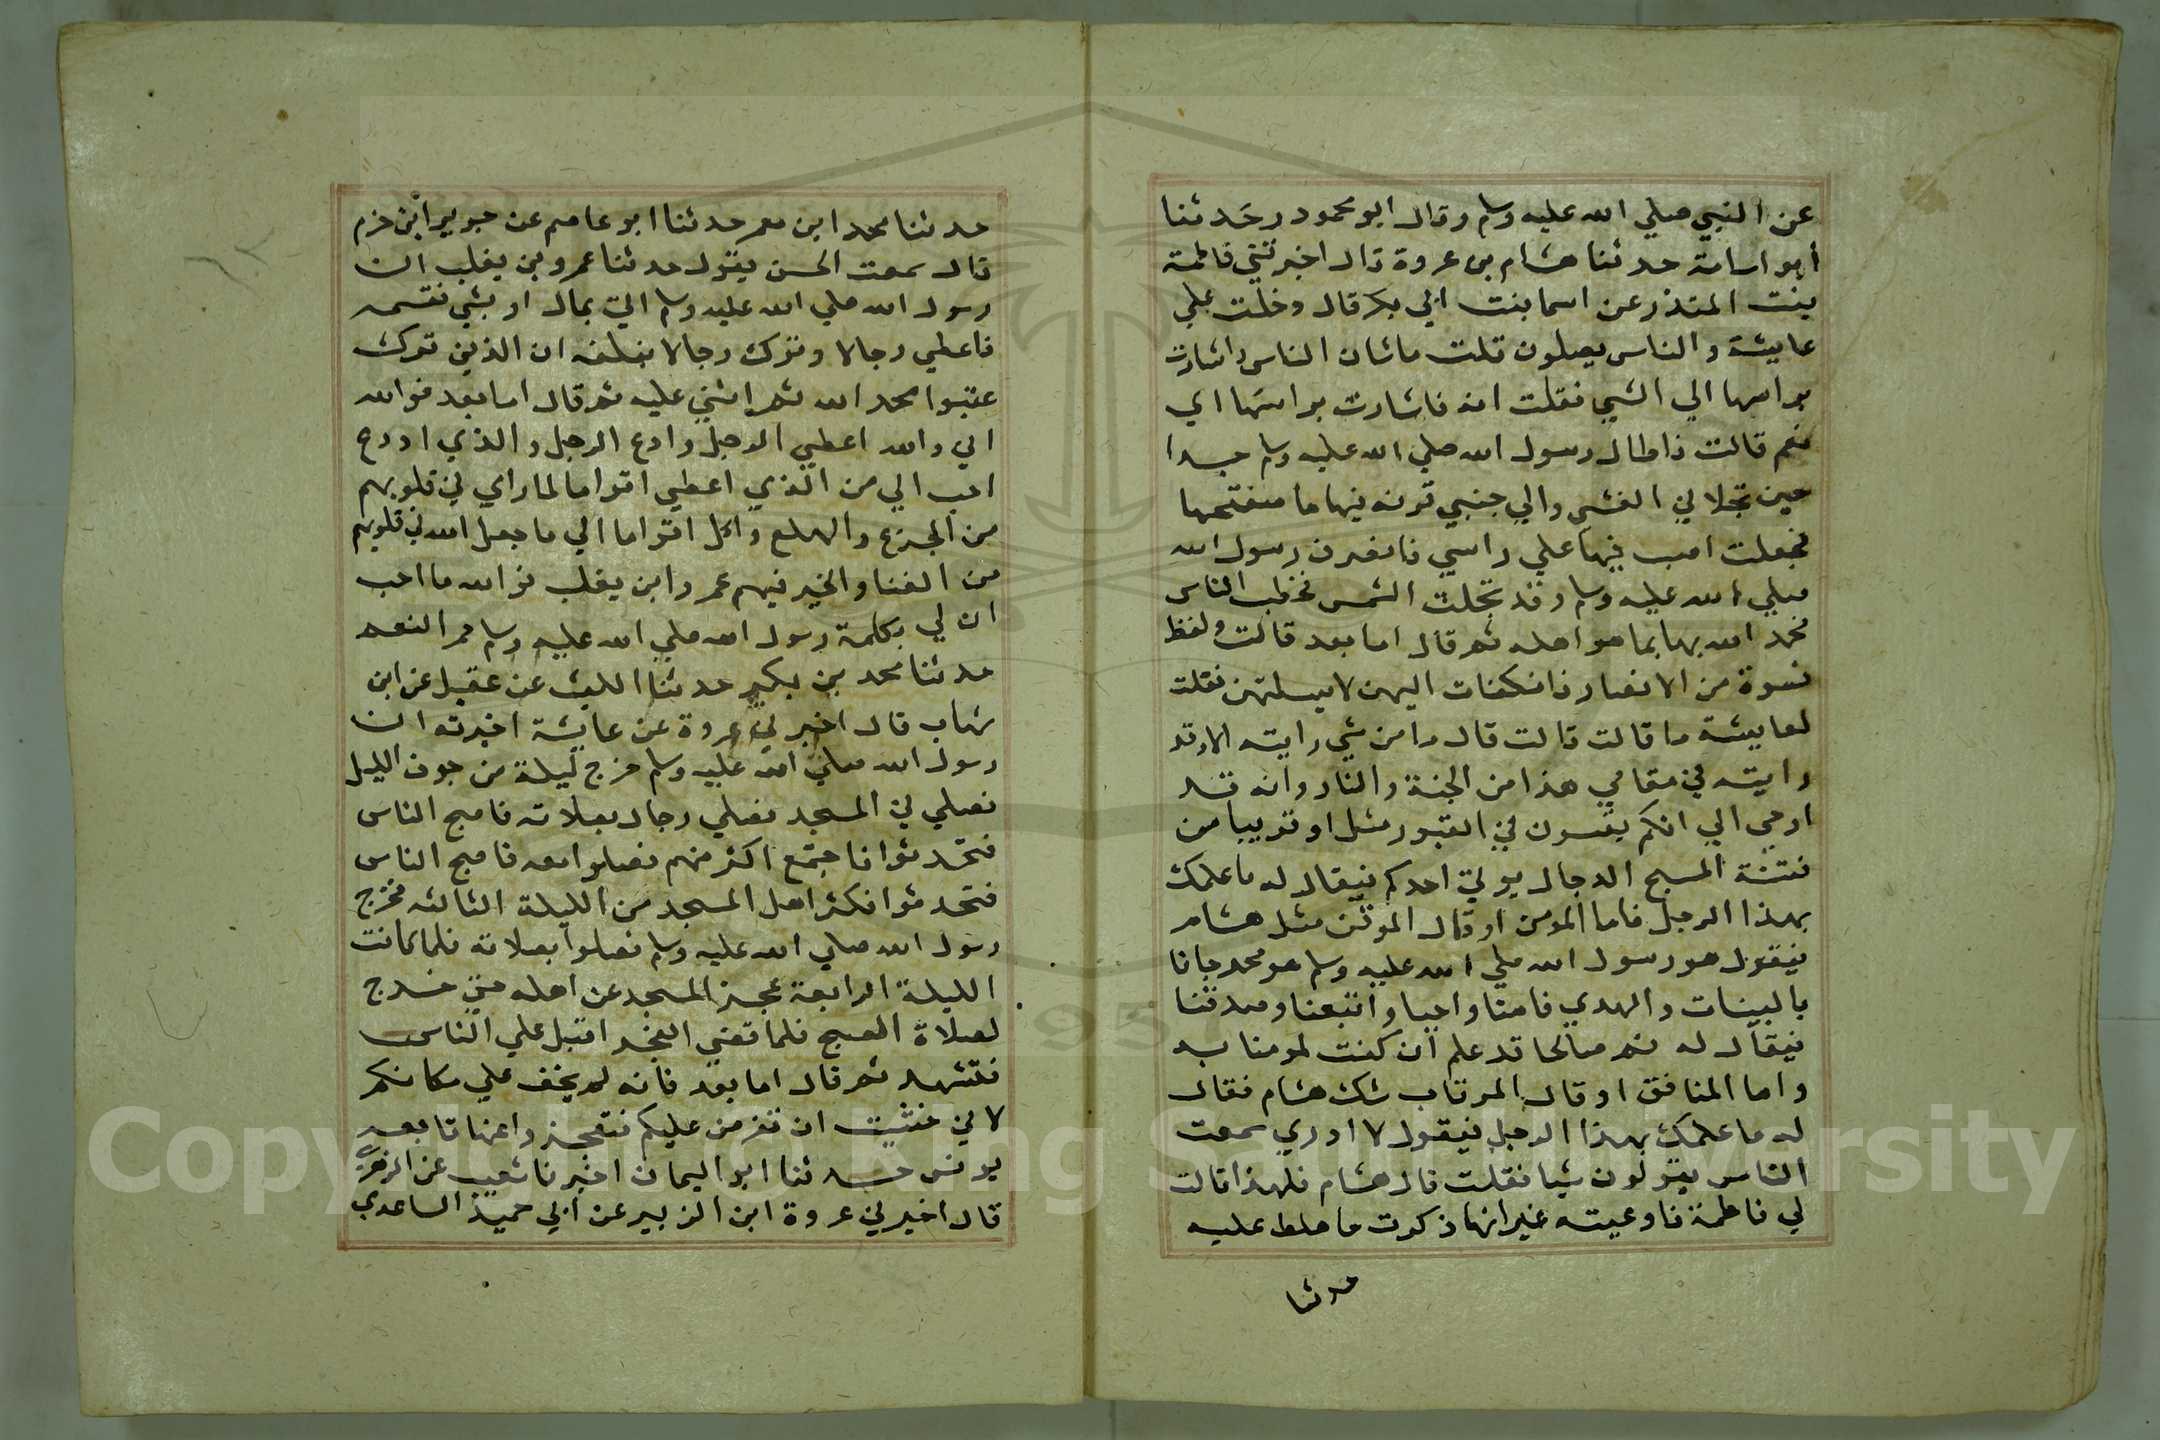 عن النبي صلي الله عليه وسلم وقال ابو محمود رحدثنا
أبو اسامة حدثنا هشام بن عروة قال اخبرتني فاطمة
بنت المنذر عن اسما بنت ابي بكر قال دخلت علي
عايشة والناس يصلون قلت ماشان الناس فاشارت
براسها الي الشي فقلت اية فاشارت براسها اي
نعم قالت فاطال رسول الله صلي الله عليه وسلم جدا
حين تجلاني الغشي والي جنبي قربه فيها ما ففتحها
فجعلت اصب فيها علي راسي فانصرف رسول الله
صلي الله عليه وسلم وقد تجلت الشمس فخطب الناس
فحمد الله بها بما هو اهله ثم قال اما بعد قالت ولفظ
نسوة من الانصار فانكفات اليهن لا يسلتهن فقلت
لعايشة ما قالت قالت قال ما من شي رايته الا وقد
رايته في مقامي هذا من الجنة والنار وانه قد
اوحي الي انكم يفتسون في القبور مثل او قريبا من
فتنة المسيح الدجال يوتي احدكم فيقال له ما علمك
بهذا الرجل فاما المومن او قال الموقن مثل هشام
فيقول هو رسول الله صلي الله عليه وسلم هو محمد جانا
بالبينات والهدي فامنا واجبا واتبعنا وصدقنا
فيقال له نم صالحا قد علم ان كنت لمومنا به
واما المنافق او قال المرتاب شك هشام فقال
له ما علمك بهذا الرجل فيقول لا ادري سمعت
الناس يقولون شيا فقلت قال هشام فلهذا قالت
لي فاطمة فاوعيته غير انها ذكرت ما ملط عليه
حدثنا
حدثنا محمد ابن معمر حدثنا ابو عاصم عن جويرابن حزم
قال سمعت الحسن يقول حدثنا عمرو بن يغلب ان
رسول الله صلي الله عليه وسلم اتي بمال او بشي فقسمه
فاعطي رجالا وترك رجالا فبلغه ان الذين ترك
عتبوا محمد الله ثم اثني عليه ثم قال اما بعد فوالله
اني والله اعطي الرجل وادع الرجل والذي اودع
احب الي من الذي اعطي اقواما لما راي في قلوبهم
من الجزع والهلع واكل اقواما الي ما جعل الله في قلوبهم
من الغنا والخير فيهم عمروابن يغلب فوالله ما احب
ان لي بكلمة رسول الله صلي الله عليه وسلم حمر النعم
حدثنا محمد بن بكير حدثنا الليث عن عقيل عن ابن
شهاب قال اخبرني عروة عن عايشة اخبرته ان
رسول الله صلي الله عليه وسلم خرج ليلة من جوف الليل
فصلي في المسجد فصلي رجال بصلاته فاصبح الناس
فتحدثوا فاجتمع اكثر منهم فصلوا معه فاصبح الناس
فتحدثوا فكثر اهل المسجد من الليلة الثالثه فخرج
رسول الله صلي الله عليه وسلم فصلوا بصلاته فلما كانت
الليلة الرابعة عجز المسجد عن اهله حتي خرج
لصلاة الصبح فلما قضي الفجر اقبل علي الناس
فتشهد ثم قال اما بعد فانه لم يخف علي مكانكم
لاني خشيت ان تفرض عليكم فتعجز واعنها تابعه
يونس حدثنا ابو اليمان اخبرنا شعيب عن الزهري
قال اخبرني عروة ابن الزبير عن ابي حميد الساعدي
Copyright © King Saud University
1957